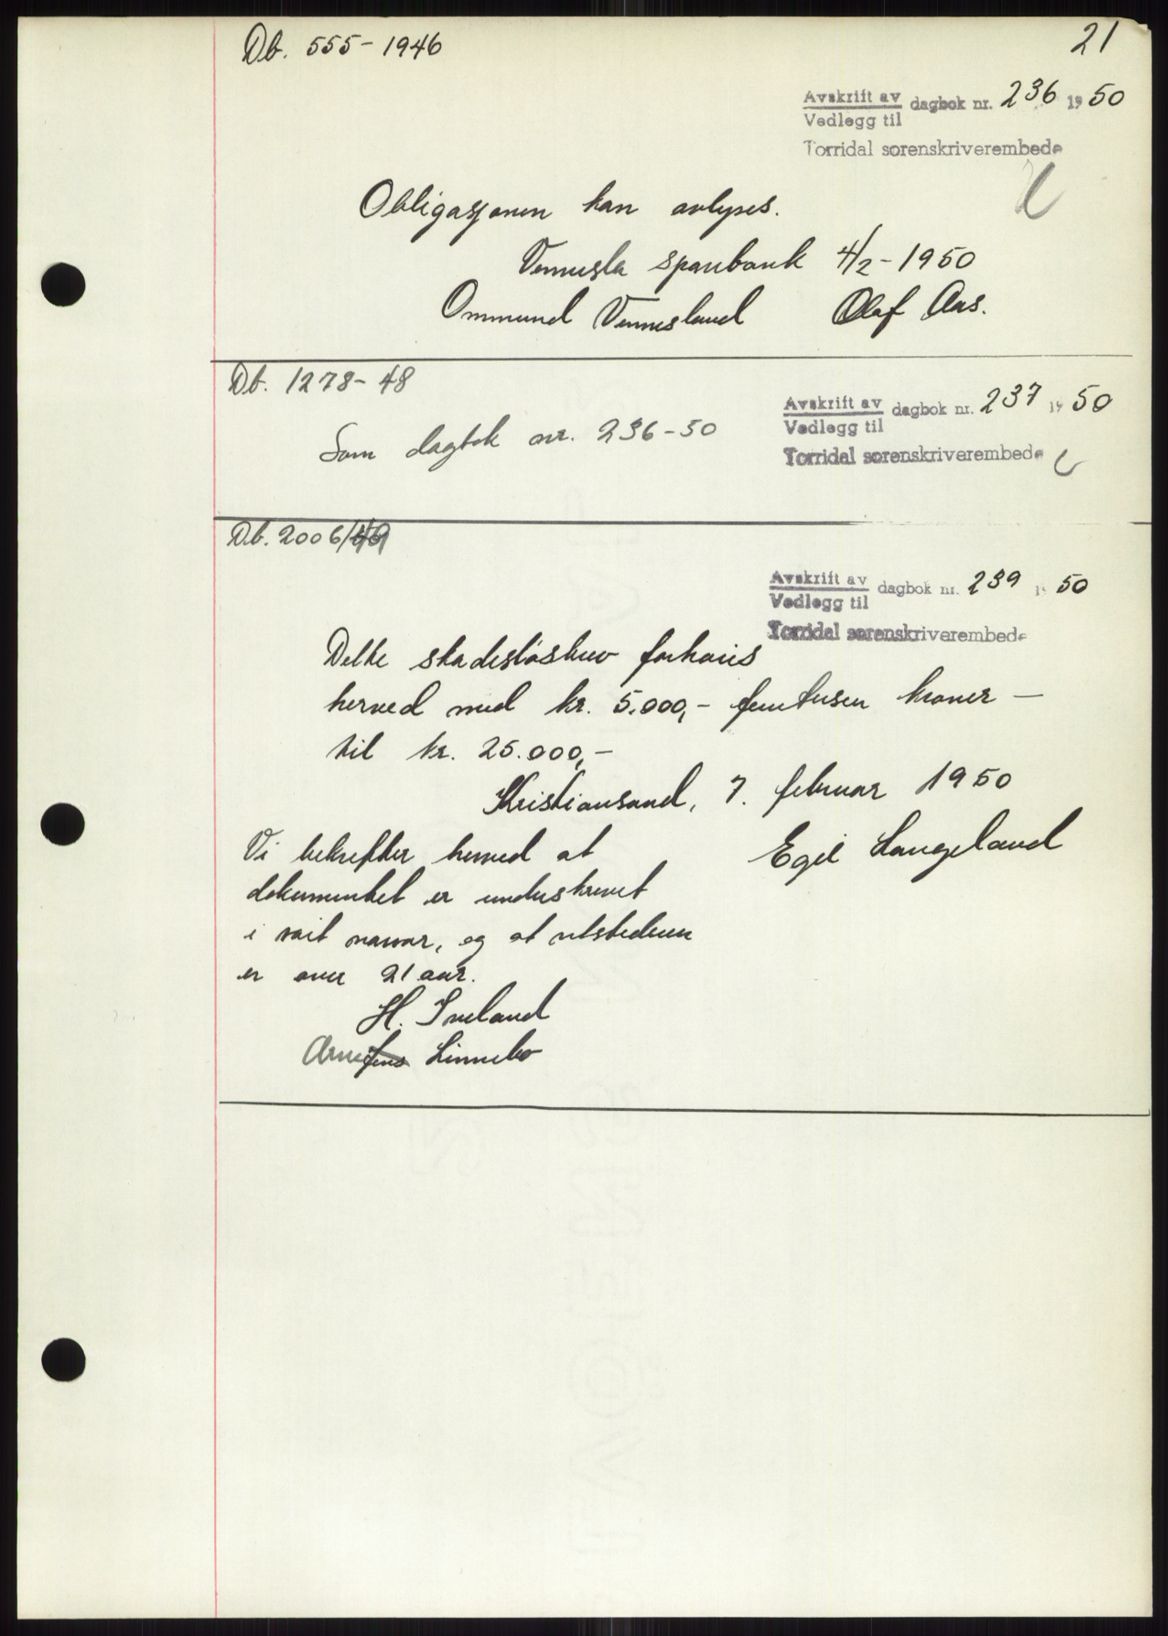 21
Db. 555-1946
Avskrift av dagbok nr. 236 1950
Vedlegg til
Torridal sorenskriverembede
Obligasjonen kan avlyses.
Vennesla Sparebank 4/2-1950
Ommund Vennesland Olaf Aas.
Db. 1278-48
Avskrift av dagbok nr. 237 1950
Vedlegg til
Torridal sorenskriverembede
Som dagbok nr. 236-50
Db. 2006/49
Avskrift av dagbok nr. 239 1950
Vedlegg til
Torridal sorenskriverembede
Dette skadesløsbrev forhøies
herved med kr. 5.000,- femtusen kroner -
til kr. 25.000,-
Kristiansand, 7. februar 1950
Egil Langeland
Vi bekrefter herved at
dokumentet er underskrevet
i vårt nærvær, og at utstederen
er over 21 aar.
H. Iveland
Arne Jens Linnebo